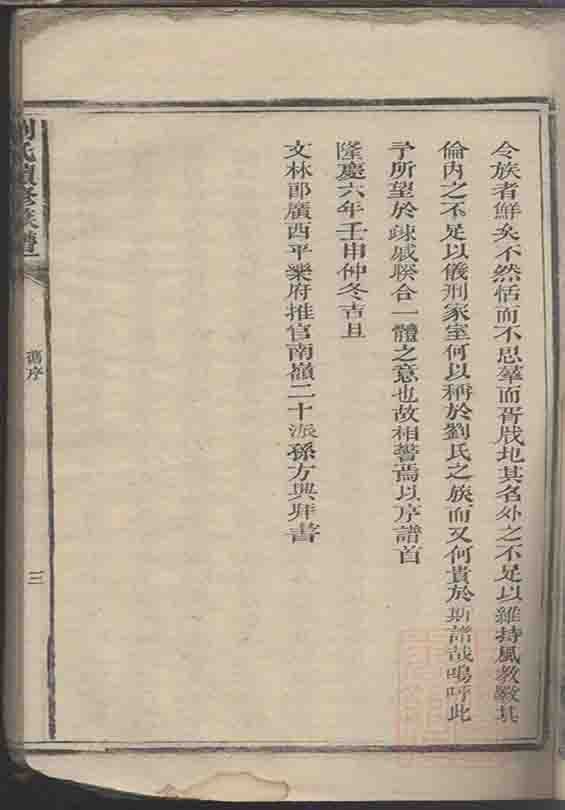 令族者鮮矣不然恬而不思萃而胥戕圮其名外之不足以維持風教敦其
倫內之不足以儀刑家室何以稱於劉氏之族而又何貴於斯譜哉嗚呼此
予所望於疎戚聯合一體之意也故相警焉以序譜首
隆慶六年壬申仲冬吉旦
文林郎廣西平樂府推官南嶺二十派孫方興拜書
劉氏續修族譜
舊序
三